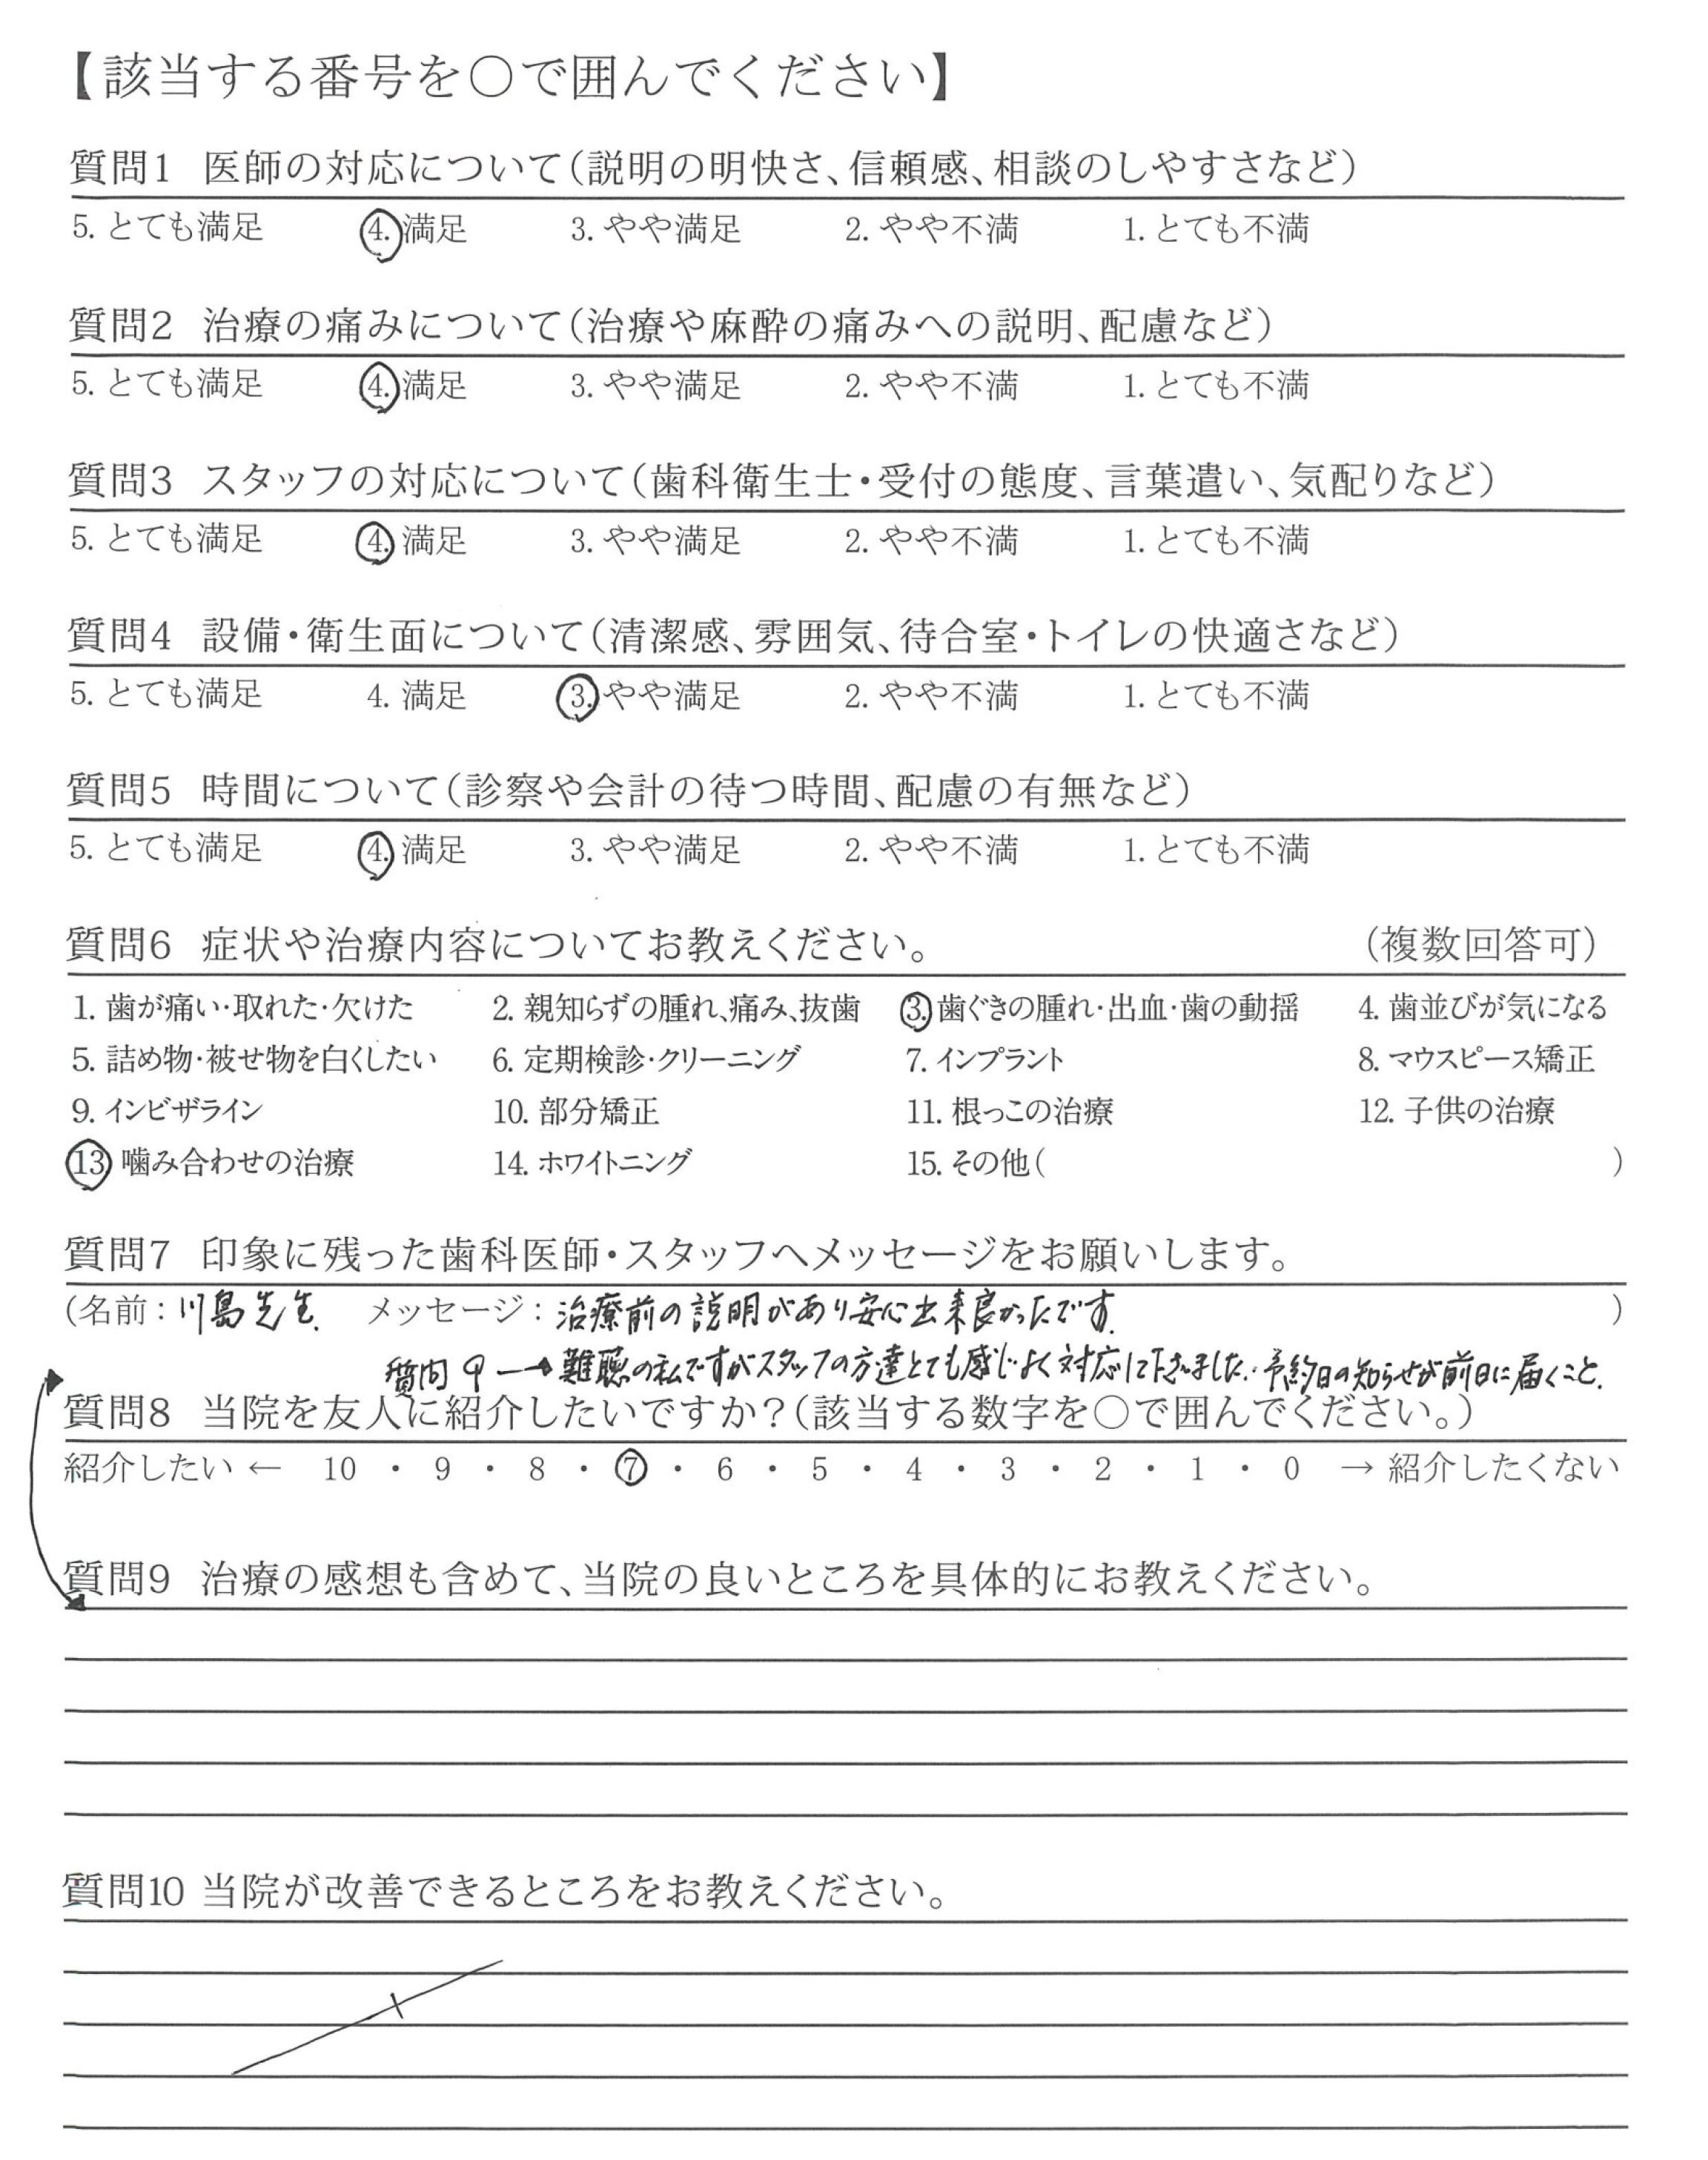 【該当する番号を○で囲んでください】
質問1 医師の対応について(説明の明快さ、信頼感、相談のしやすさなど)
5. とても満足 4. 満足 3. やや満足 2. やや不満 1. とても不満
質問2 治療の痛みについて(治療や麻酔の痛みへの説明、配慮など)
5. とても満足 4. 満足 3. やや満足 2. やや不満 1. とても不満
質問3 スタッフの対応について(歯科衛生士・受付の態度、言葉遣い、気配りなど)
5. とても満足 4. 満足 3. やや満足 2. やや不満 1. とても不満
質問4 設備・衛生面について(清潔感、雰囲気、待合室・トイレの快適さなど)
5. とても満足 4. 満足 3. やや満足 2. やや不満 1. とても不満
質問5 時間について(診察や会計の待つ時間、配慮の有無など)
5. とても満足 4. 満足 3. やや満足 2. やや不満 1. とても不満
質問6 症状や治療内容についてお教えください。 (複数回答可)
1. 歯が痛い・取れた・欠けた 2. 親知らずの腫れ、痛み、抜歯 3. 歯ぐきの腫れ・出血・歯の動揺 4. 歯並びが気になる
5. 詰め物・被せ物を白くしたい 6. 定期検診・クリーニング 7. インプラント 8. マウスピース矯正
9. インビザライン 10. 部分矯正 11. 根っこの治療 12. 子供の治療
13 噛み合わせの治療 14. ホワイトニング 15. その他( )
質問7 印象に残った歯科医師・スタッフへメッセージをお願いします。
(名前：川島先生. メッセージ：治療前の説明があり安心出来良かったです. )
質問9 → 難聴の私ですがスタッフの方達とても感じよく対応して下さいました. 予約日の知らせが前日に届くこと.
質問8 当院を友人に紹介したいですか？(該当する数字を○で囲んでください。)
紹介したい ← 10 ・ 9 ・ 8 ・ 7 ・ 6 ・ 5 ・ 4 ・ 3 ・ 2 ・ 1 ・ 0 → 紹介したくない
質問9 治療の感想も含めて、当院の良いところを具体的にお教えください。
質問10 当院が改善できるところをお教えください。